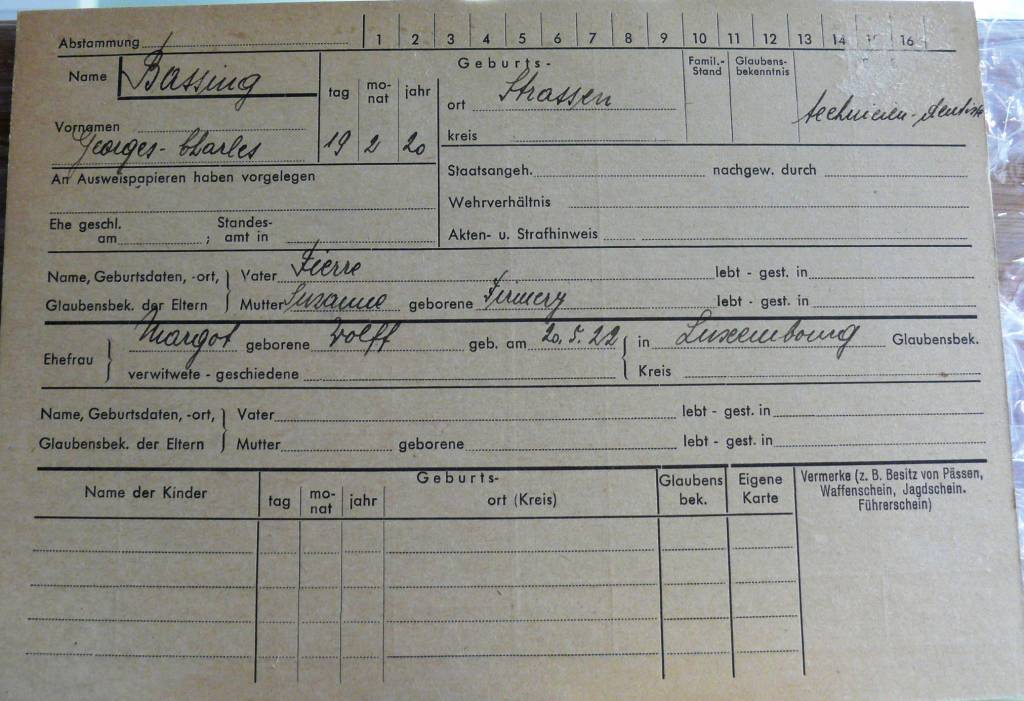 Abstammung 1 2 3 4 5 6 7 8 9 10 11 12 13 14 15 16
Name Bassing
Vornamen
Georges-Charles
Geburts-
tag mo-nat jahr
19 2 20
ort Strassen
kreis
Famil.-Stand
Glaubens-bekenntnis
technicien-dentiste
An Ausweispapieren haben vorgelegen
Ehe geschl. Standes-
am ; amt in
Staatsangeh. nachgew. durch
Wehrverhältnis
Akten- u. Strafhinweis
Name, Geburtsdaten, -ort, Vater Pierre lebt - gest. in
Glaubensbek. der Eltern Mutter Suzanne geborene lebt - gest. in
Ehefrau Margot geborene Wolff geb. am 20. 5. 22 in Luxembourg Glaubensbek.
verwitwete - geschiedene Kreis
Name, Geburtsdaten, -ort, Vater lebt - gest. in
Glaubensbek. der Eltern Mutter geborene lebt - gest. in
Name der Kinder
Geburts-
tag mo-nat jahr ort (Kreis)
Glaubens
bek.
Eigene
Karte
Vermerke (z. B. Besitz von Pässen,
Waffenschein, Jagdschein.
Führerschein)